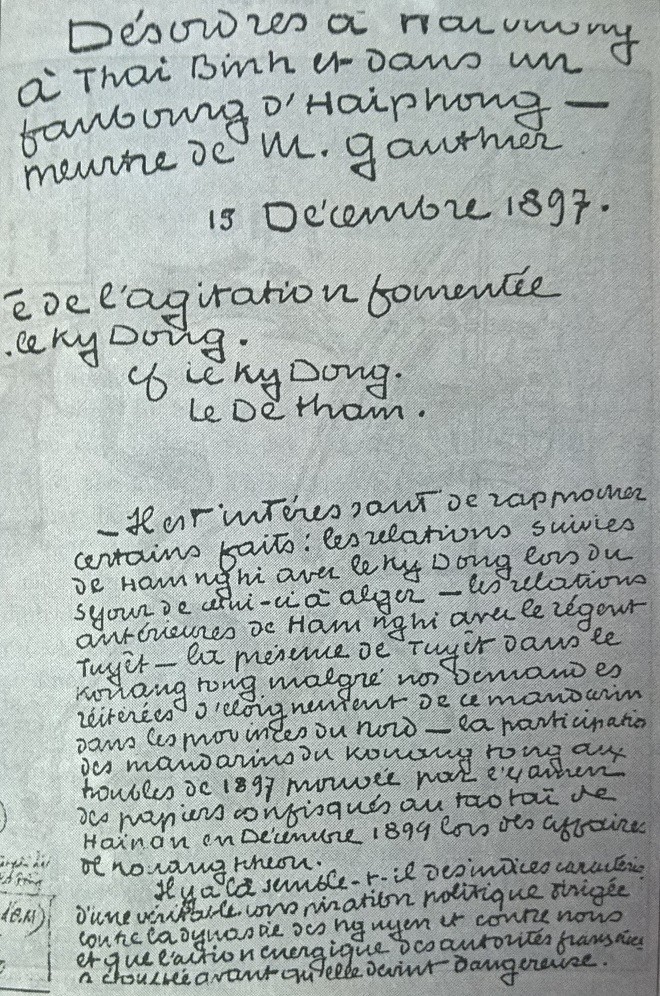 Désordres à
à Thai Binh et dans un
faubourg d'Haiphong —
meurtre de M. Gauthier
15 Décembre 1897.
é de l'agitation fomentée
.le Ky Dong.
cf le Ky Dong.
Le Dé Tham.
— Il est intéressant de rapprocher
certains faits : les relations suivies
de Ham nghi avec le Ky Dong lors du
séjour de celui-ci à alger — les relations
antérieures de Ham nghi avec le régent
Tuyêt — la présence de Tuyêt dans le
Kouang tong malgré nos demandes
réitérées d'éloignement de ce mandarin
dans les provinces du nord — la participatio
des mandarins du Kouang tong aux
troubles de 1897 prouvée par l'examen
des papiers confisqués au taotaï de
Haïnan en Décembre 1899 lors des affaires
de
Il y a là semble-t-il des indices caractéris
d'une véritable conspiration politique dirigée
contre la dynastie des nguyen et contre nous
et que l'action énergique des autorités françaises
a étouffée avant qu'elle devint dangereuse.